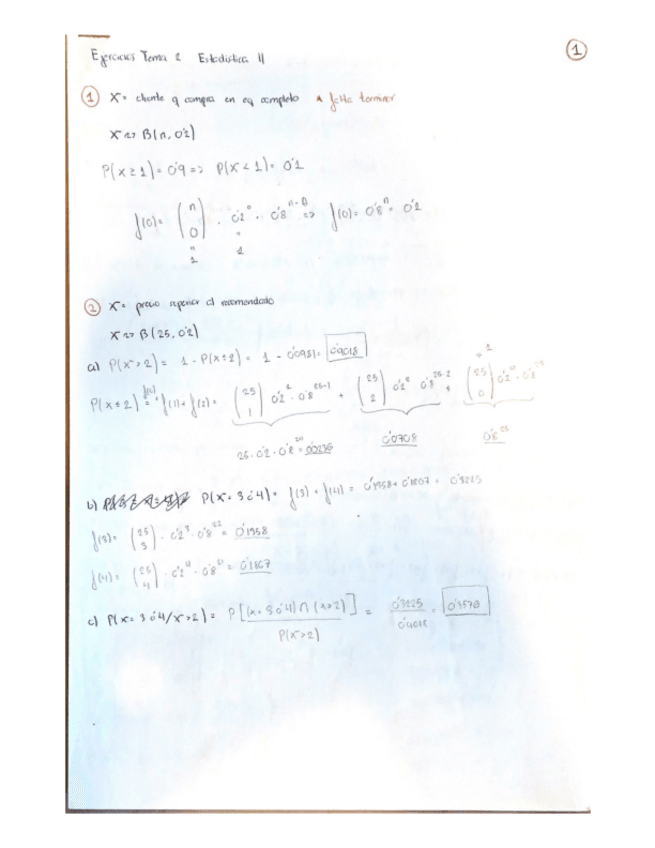 Ejercicios Tema 2 Estadística II
1
1 X = cliente q compra en eq completo * falta terminar
X ~> B(n, 0'2)
P(X ≥ 1) = 0'9 => P(X < 1) = 0'1
f(0) = (n 0) · 0'2^0 · 0'8^(n-0) => f(0) = 0'8^n = 0'1
" 1 " 1
2 X = precio superior al recomendado
X ~> B(25, 0'2)
a) P(X > 2) = 1 - P(X ≤ 2) = 1 - 0'0981 = 0'9018
P(X ≤ 2) = f(0) + f(1) + f(2) = (25 1) 0'2 · 0'8^(25-1) + (25 2) 0'2^2 0'8^(25-2) + (25 0) 0'2^0 · 0'8^25
25 · 0'2 · 0'8^24 = 0'0236 0'0708 0'8^25
b) P(X = 3 ó 4) = f(3) + f(4) = 0'1358 + 0'1867 = 0'3225
f(3) = (25 3) · 0'2^3 · 0'8^22 = 0'1358
f(4) = (25 4) · 0'2^4 · 0'8^21 = 0'1867
c) P(X = 3 ó 4 / X > 2) = P[(X = 3 ó 4) ∩ (X > 2)] / P(X > 2) = 0'3225 / 0'9018 = 0'3576